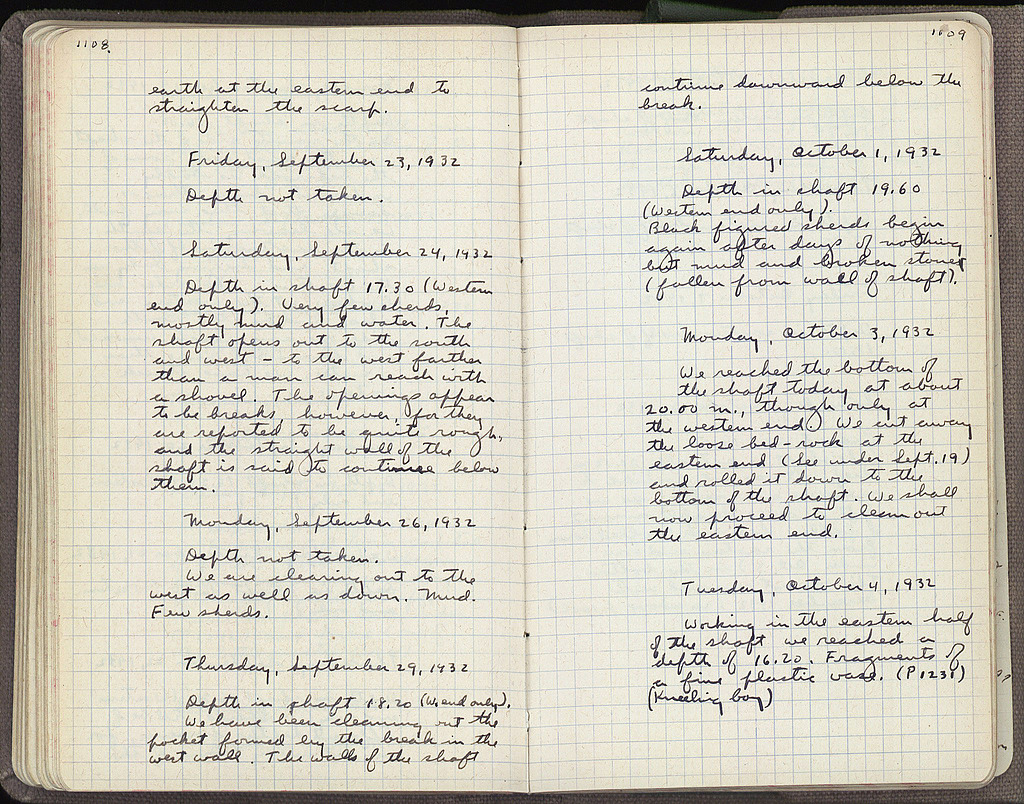 1108.
earth at the eastern end to
straighten the scarp.
Friday, September 23, 1932
Depth not taken.
Saturday, September 24, 1932
Depth in shaft 17.30 (Western
end only). Very few sherds,
mostly mud and water. The
shaft opens out to the south
and west – to the west farther
than a man can reach with
a shovel. The openings appear
to be breaks, however, for they
are reported to be quite rough,
and the straight wall of the
shaft is said to continue below
them.
Monday, September 26, 1932
Depth not taken.
We are clearing out to the
west as well as down. Mud.
Few sherds.
Thursday, September 29, 1932
Depth in shaft 18.20 (W. end only).
We have been cleaning out the
pocket formed by the break in the
west wall. The walls of the shaft
1109
continue downward below the
break.
Saturday, October 1, 1932
Depth in shaft 19.60
(Western end only).
Black figured sherds begin
again after days of nothing
but mud and broken stones
(fallen from wall of shaft).
Monday, October 3, 1932
We reached the bottom of
the shaft today at about
20.00 m., though only at
the western end. We cut away
the loose bed-rock at the
eastern end (See under Sept. 19)
and rolled it down to the
bottom of the shaft. We shall
now proceed to clean out
the eastern end.
Tuesday, October 4, 1932
Working in the eastern half
of the shaft we reached a
depth of 16.20. Fragments of
a fine plastic vase. (P 1231)
(Kneeling boy)